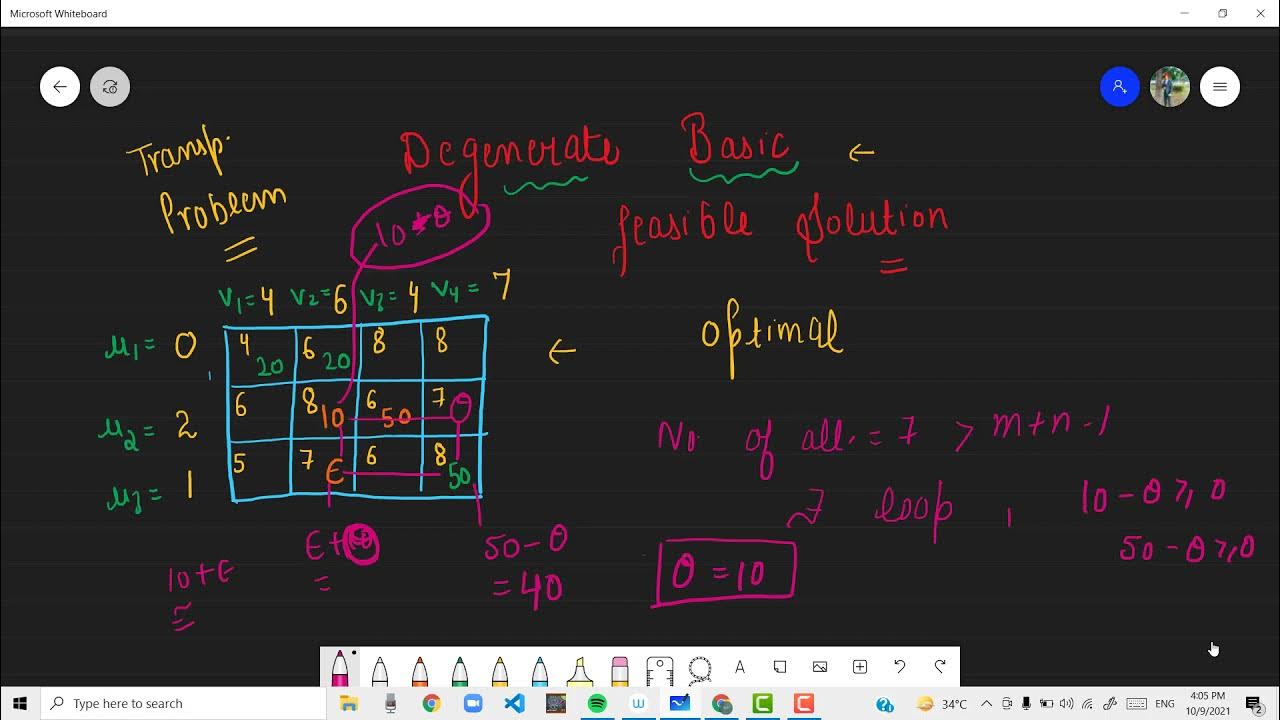 Microsoft Whiteboard
Transp.
Problem
Degenerate Basic ←
feasible Solution
10-θ
V1=4 V2=6 V3=4 V4=7
μ1= 0
4 20 6 20 8 8
←
optimal
μ2= 2
6 8 10 6 50 7 θ
μ3= 1
5 7 ϵ 6 8 50
No. of all. = 7 > m+n-1
loop
10-θ≥0
50-θ≥0
ϵ+10
10+ϵ
50-θ
=40
θ=10
A
Type here to search
34°C
ENG
4:05 PM
10/9/2021
2